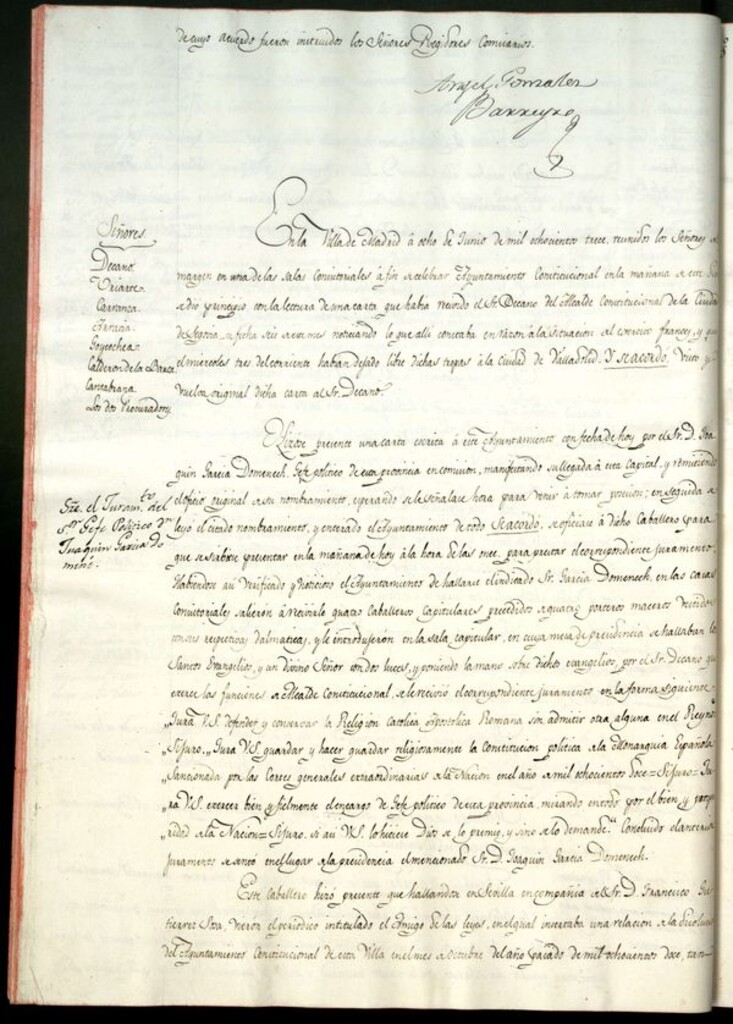 de cuyo acuerdo fueron instruidos los Señores Regidores Comisarios.
Angel Gonzalez
Barreyro
Señores
Decano
Uriarte
Carranza
Goycochea
Calderon de la Barca
Cantabrana
Los dos Procuradores
En la Villa de Madrid á ocho de Junio de mil ochocientos trece, reunidos los Señores
margen en una de las salas consistoriales á fin de celebrar Ayuntamiento Constitucional en la mañana de este
se dio principio con la lectura de una carta que habia recivido el Sr. Decano del Alcalde Constitucional de la Ciudad
de Segovia, su fecha seis de este mes noticiando lo que alli constaba en razon á la situacion del exercito frances, y que
el miercoles tres del corriente habian dejado libre dichas tropas á la Ciudad de Valladolid. Y se acordó, Visto y
vuelva original dicha carta al Sr. Decano.
Hizose presente una carta escrita á este Ayuntamiento con fecha de hoy por el Sr. D. Joa
quin Garcia Domenech, Gefe politico de esta provincia en comision, manifestando su llegada á esta Capital, y remitiendo
el oficio original de su nombramiento, esperando se le señalase hora para venir á tomar posesion; en seguida se
leyo el citado nombramiento, y enterado el Ayuntamiento de todo se acordó, se oficiase á dicho Caballero para
que se sirviese presentar en la mañana de hoy á la hora de las once, para prestar el correspondiente juramento.
Sre. el Juramto. del
Sor. Gefe Politico Dn.
Juaquin Garcia Do
mené.
Habiendose asi verificado y noticioso el Ayuntamiento de hallarse el indicado Sr. Garcia Domenech, en las casas
Consistoriales salieron á recivirle quatro Caballeros Capitulares precedidos de quatro porteros maceros vestidos
con sus respectivas dalmaticas, y le introdujeron en la sala capitular, en cuya mesa de presidencia se hallaban los
Santos Evangelios, y un divino Señor con dos luces, y poniendo la mano sobre dichos evangelios, por el Sr. Decano que
exerce las funciones de Alcalde Constitucional, se le recivió el correspondiente juramento en la forma siguiente.
„Jura V.S. defender y conservar la Religion Catolica Apostolica Romana sin admitir otra alguna en el Reyno
„Si juro. „Jura V.S. guardar y hacer guardar religiosamente la Constitucion politica de la Monarquia Española
„Sancionada por las Cortes generales extraordinarias de la Nacion en el año de mil ochocientos doce = Si juro = Ju-
„ra V.S. exercer bien y fielmente el encargo de Gefe politico de esta provincia, mirando en todo por el bien y prospe
„ridad de la Nacion = Si juro. Si asi V.S. lo hiciese Dios se lo premie, y sino se lo demande." Concluido el anterior
juramento se sentó en el lugar de la presidencia el mencionado Sr. D. Joaquin Garcia Domenech.
Este Caballero hizo presente que hallandose en Sevilla en compañia del Sr. D. Francisco Gu
tierrez Sosa, vieron el periodico intitulado el Amigo de las leyes, en el qual insertaba una relacion de la disolucion
del Ayuntamiento Constitucional de esta Villa en el mes de Octubre del año pasado de mil ochocientos doce, tan-